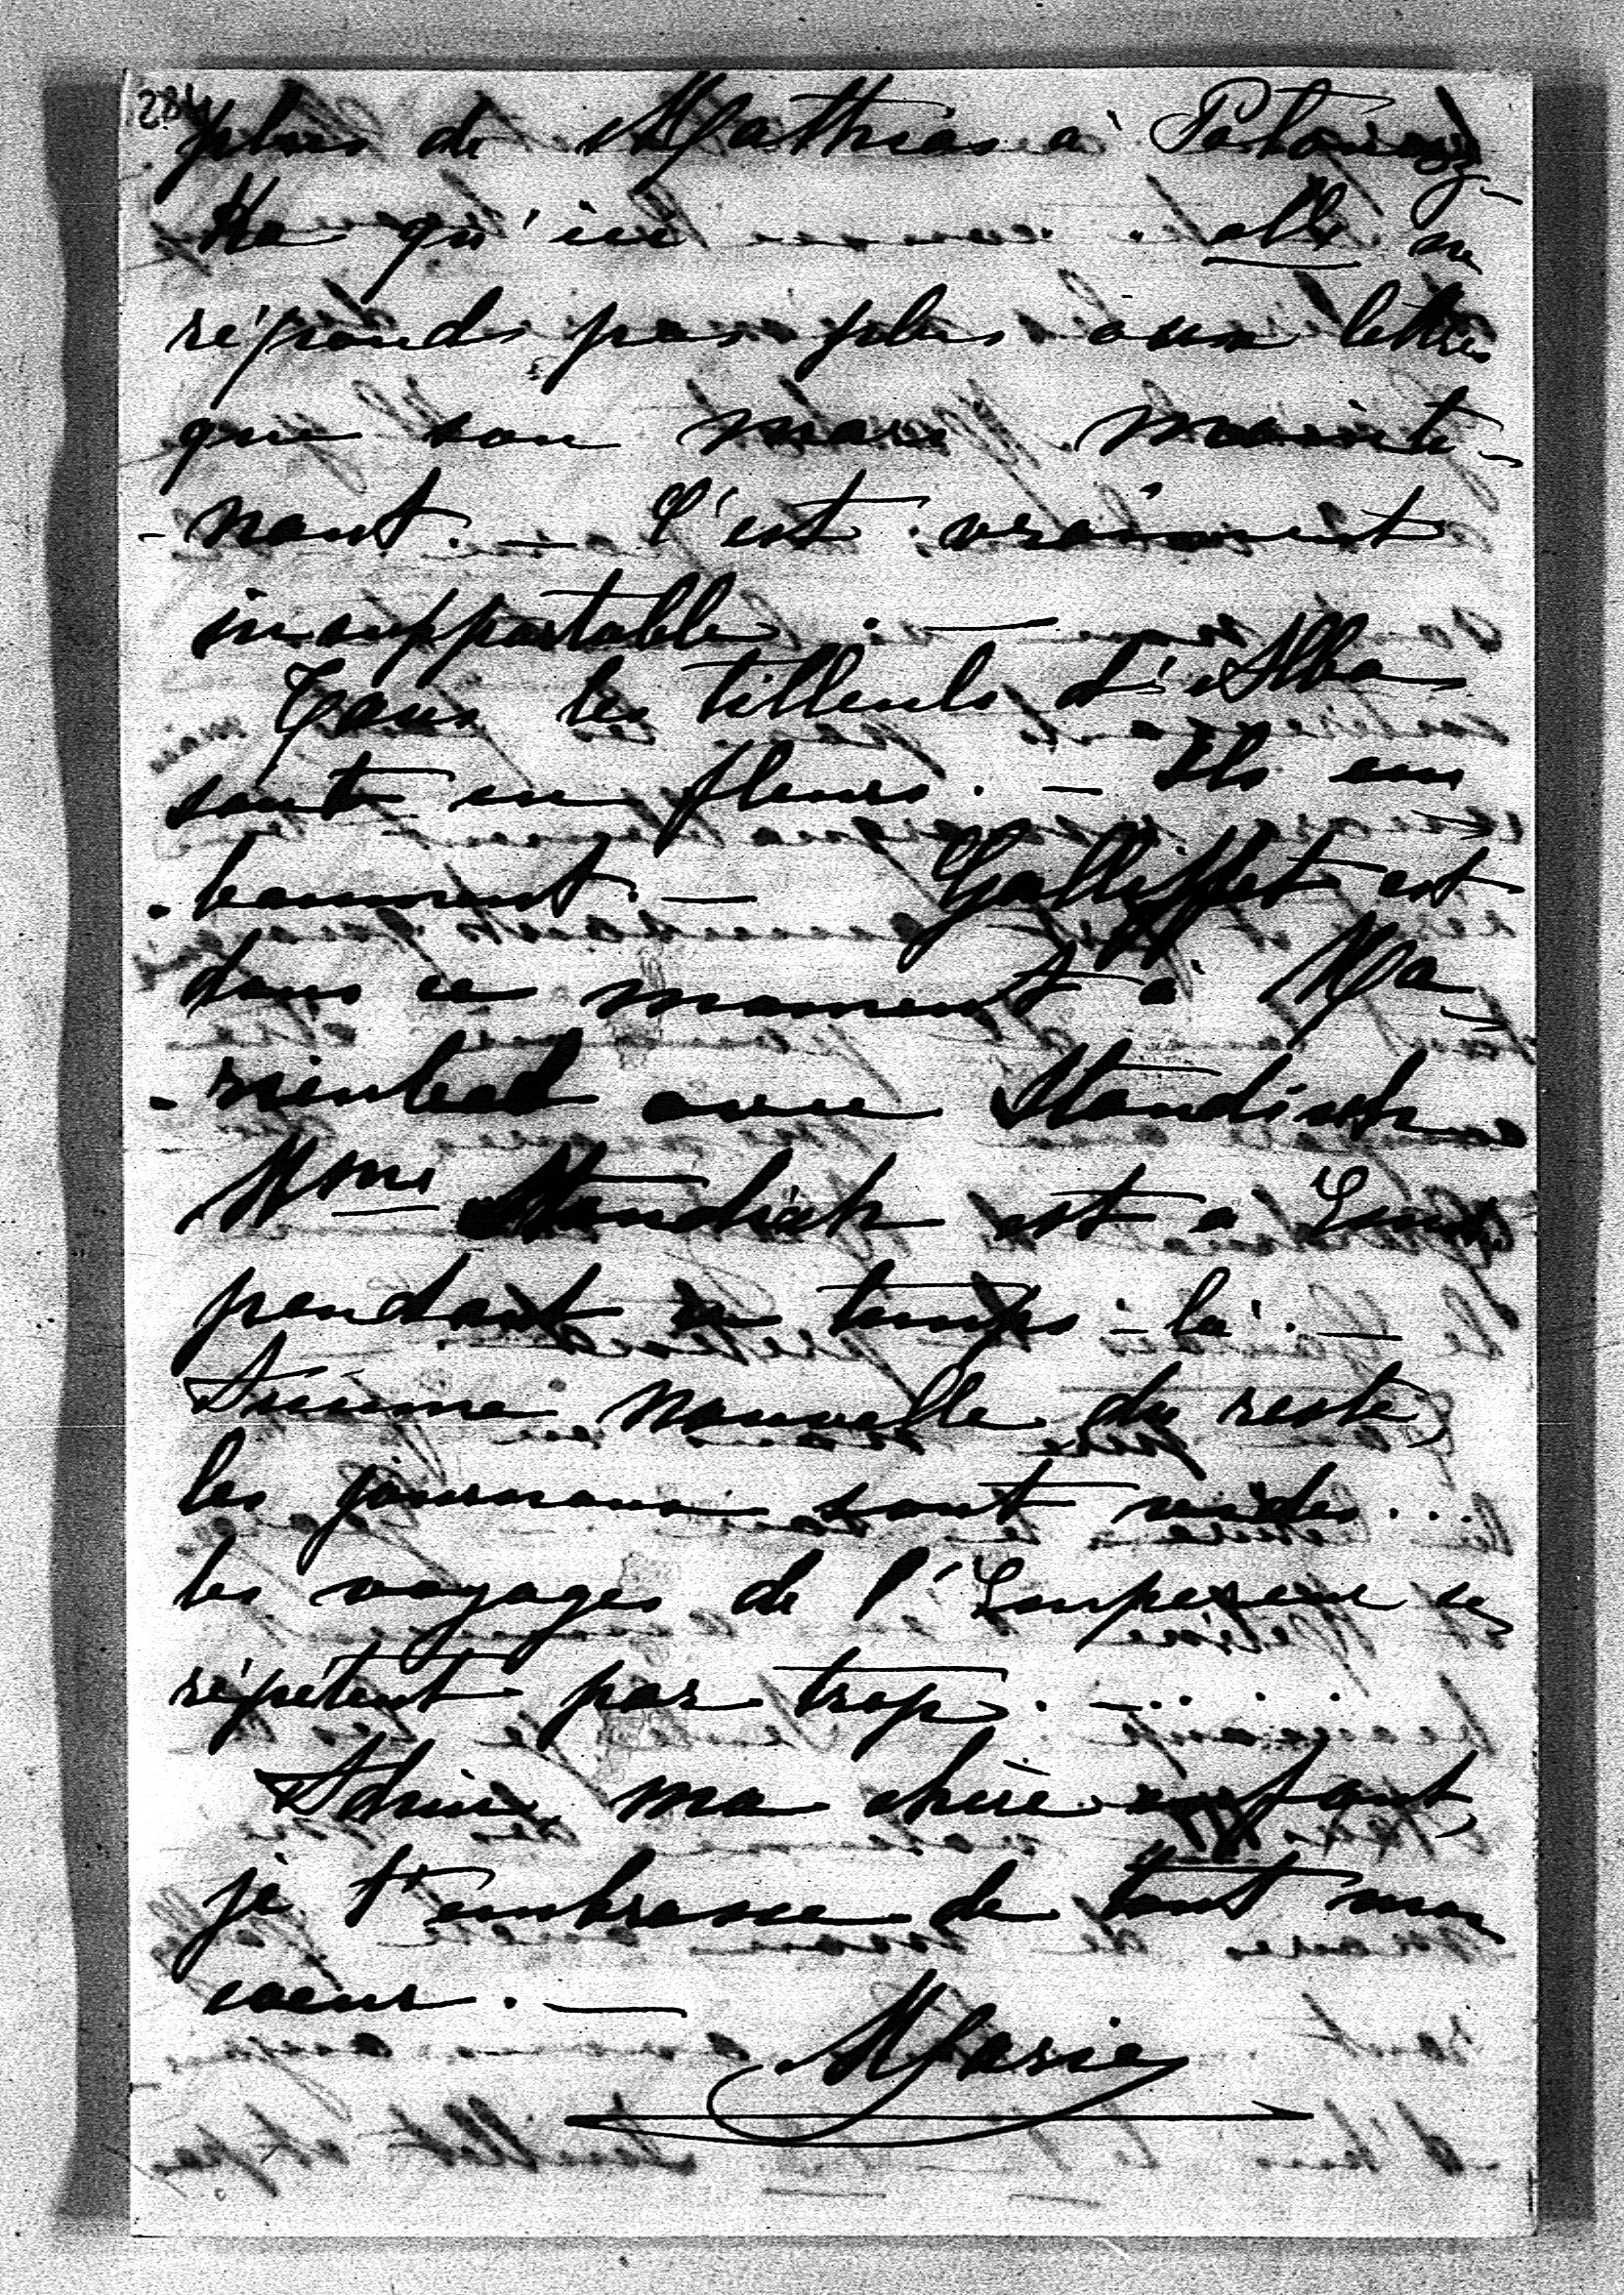 284
plus de Mathias à Patourecz-
ka qu'ici elle ne
réponds pas plus aux lettres
que son mari mainte-
-nant. — C'est vraiment
insupportable. —
Tous les tilleuls d'Alba
sont en fleurs. — Ils em
-baument. — Galliffet est
dans ce moment à Ma-
-rienbad avec Standish
Mme Standish est à Ems
pendant ce temps-là. —
Aucune nouvelle du reste
les journaux sont vides...
les voyages de l'Empereur se
répétent par trop. - ....
Adieu ma chère enfant
je t'embrasse de tout mon
coeur. —
Marie